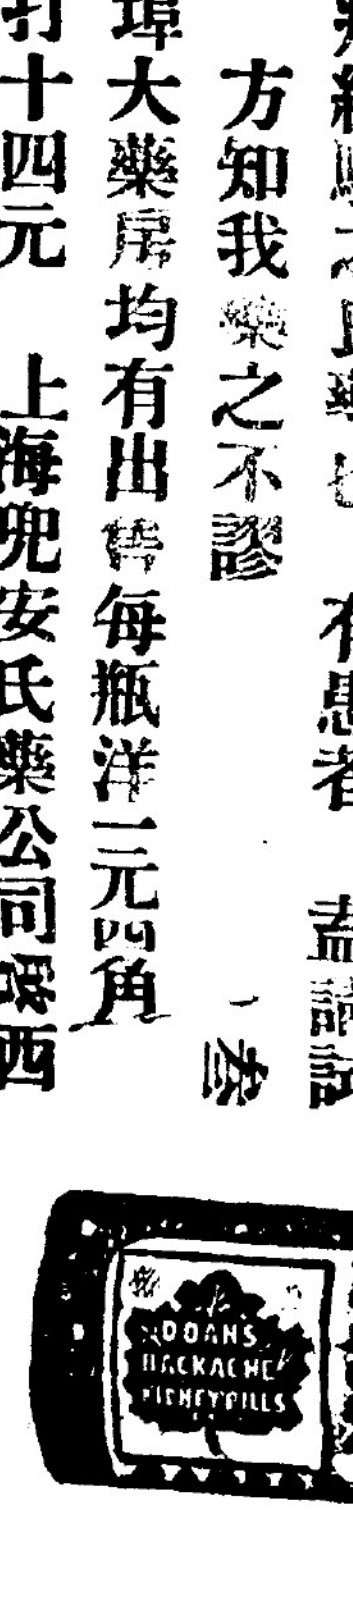 有患者 盍請試
方知我藥之不謬
埠大藥房均有出售每瓶洋一元四角
打十四元 上海兜安氏藥公司 西
DOANS
BACKACHE
KIDNEY PILLS